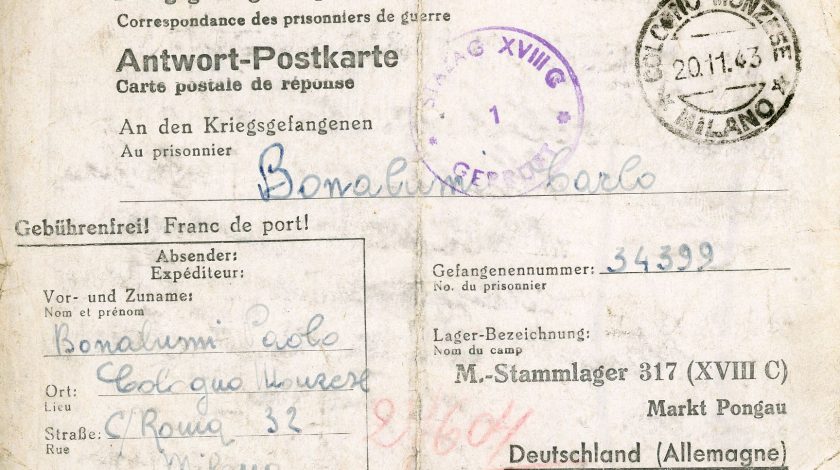 Correspondance des prisonniers de guerre
Antwort-Postkarte
Carte postale de réponse
STALAG XVIII C
1
GEPRÜFT
COLOGNO MONZESE
20.11.43
MILANO
An den Kriegsgefangenen
Au prisonnier
Bonalumi Carlo
Gebührenfrei! Franc de port!
Absender:
Expéditeur:
Vor- und Zuname:
Nom et prénom
Bonalumi Paolo
Ort:
Lieu
Cologno Monzese
Straße:
Rue
C/Roma 32
Milano
Gefangenennummer: 34399
No. du prisonnier
Lager-Bezeichnung:
Nom du camp
M.-Stammlager 317 (XVIII C)
Markt Pongau
Deutschland (Allemagne)